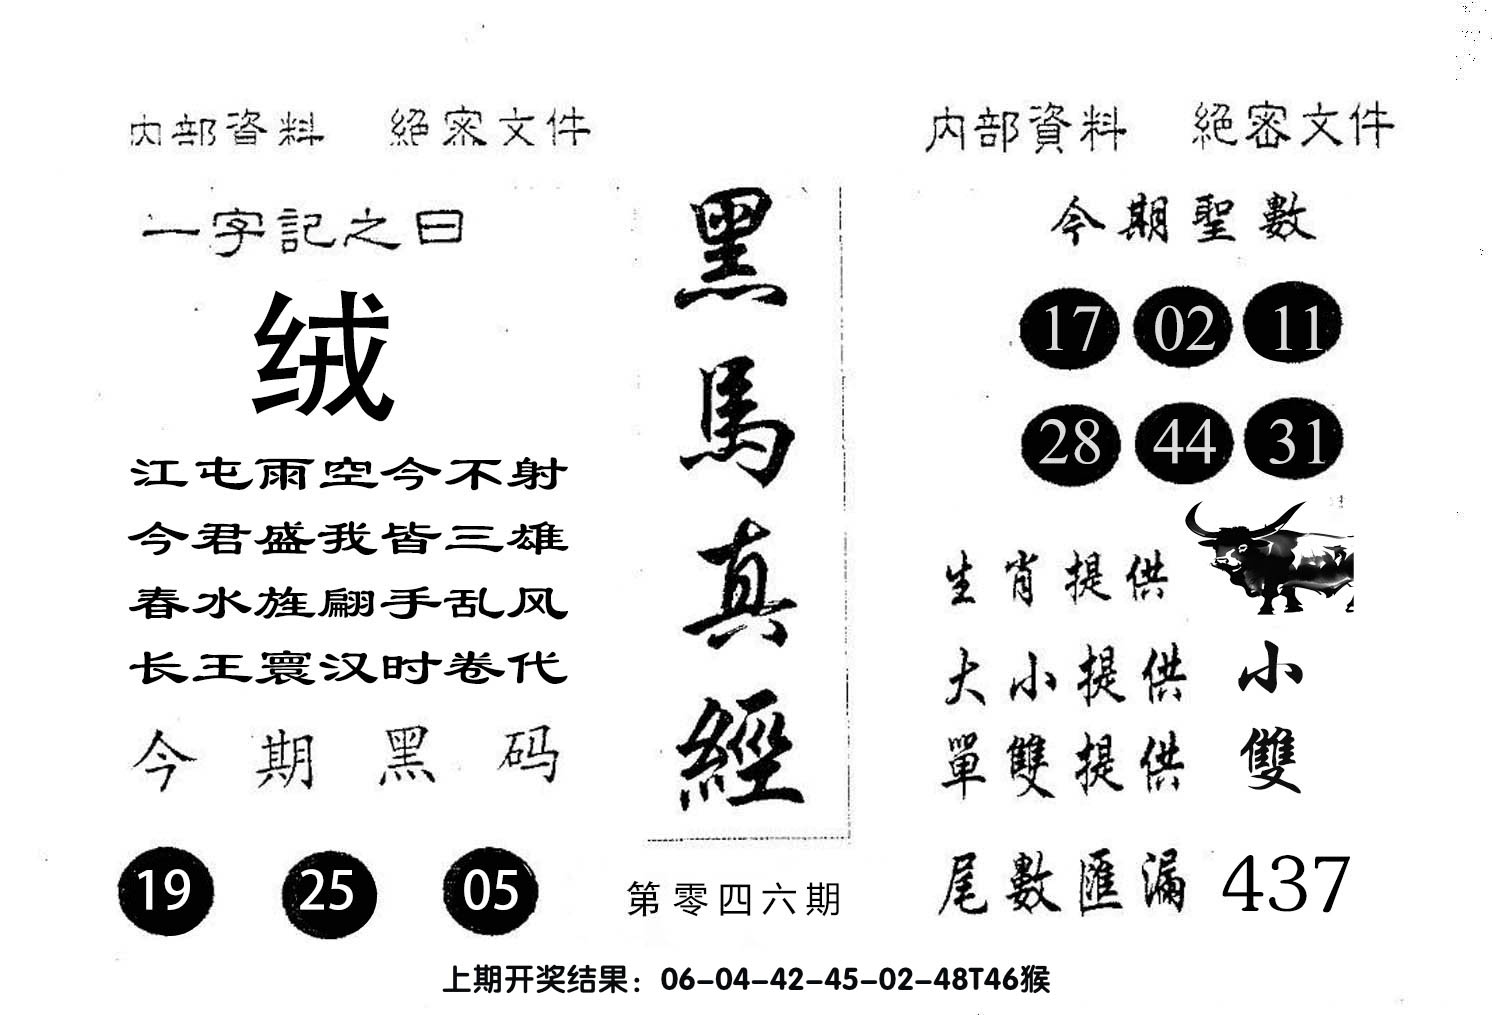 内部資料 絕密文件
一字記之曰
绒
江屯雨空今不射
今君盛我皆三雄
春水旌翩手乱风
长王寰汉时卷代
今期黑码
19 25 05
黑馬真經
第零四六期
内部資料 絕密文件
今期聖數
17 02 11
28 44 31
生肖提供
大小提供 小
單雙提供 雙
尾數匯漏 437
上期开奖结果：06-04-42-45-02-48T46猴